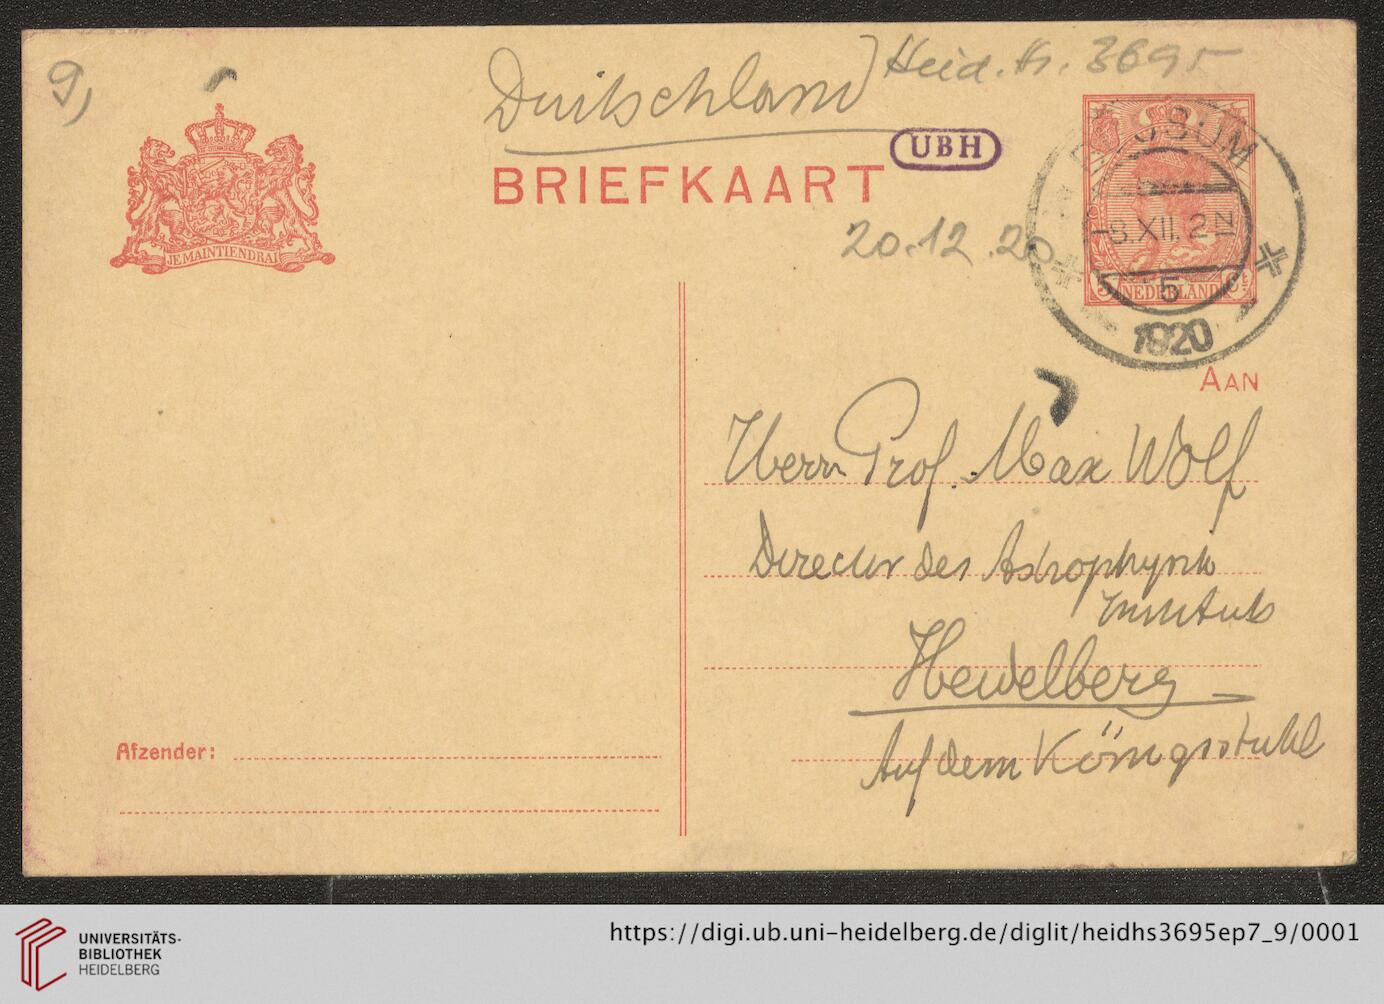 9,
Duitschland
Heid. Hs. 3695
UBH
BRIEFKAART
JE MAINTIENDRAI
20.12.20
8.XII. 2 N
5
1920
NEDERLAND
AAN
Herrn Prof. Max Wolf
Director des Astrophysik
Instituts
Heidelberg
Auf dem Königsstuhl
Afzender:
UNIVERSITÄTS-
BIBLIOTHEK
HEIDELBERG
https://digi.ub.uni-heidelberg.de/diglit/heidhs3695ep7_9/0001